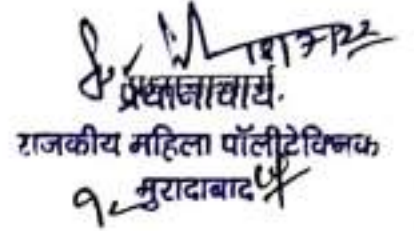 प्रधानाचार्य.
राजकीय महिला पॉलीटेक्निक
मुरादाबाद